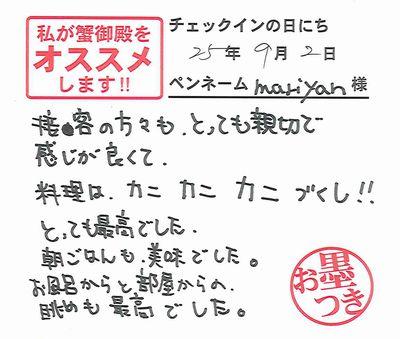 私が蟹御殿を
オススメ
します!!
チェックインの日にち
25年9月2日
ペンネーム mariyan 様
接客の方々も、とっても親切で
感じが良くて、
料理は、カニ カニ カニ づくし!!
とっても最高でした。
朝ごはんも、美味でした。
お風呂からと、部屋からの、
眺めも最高でした。
お墨つき